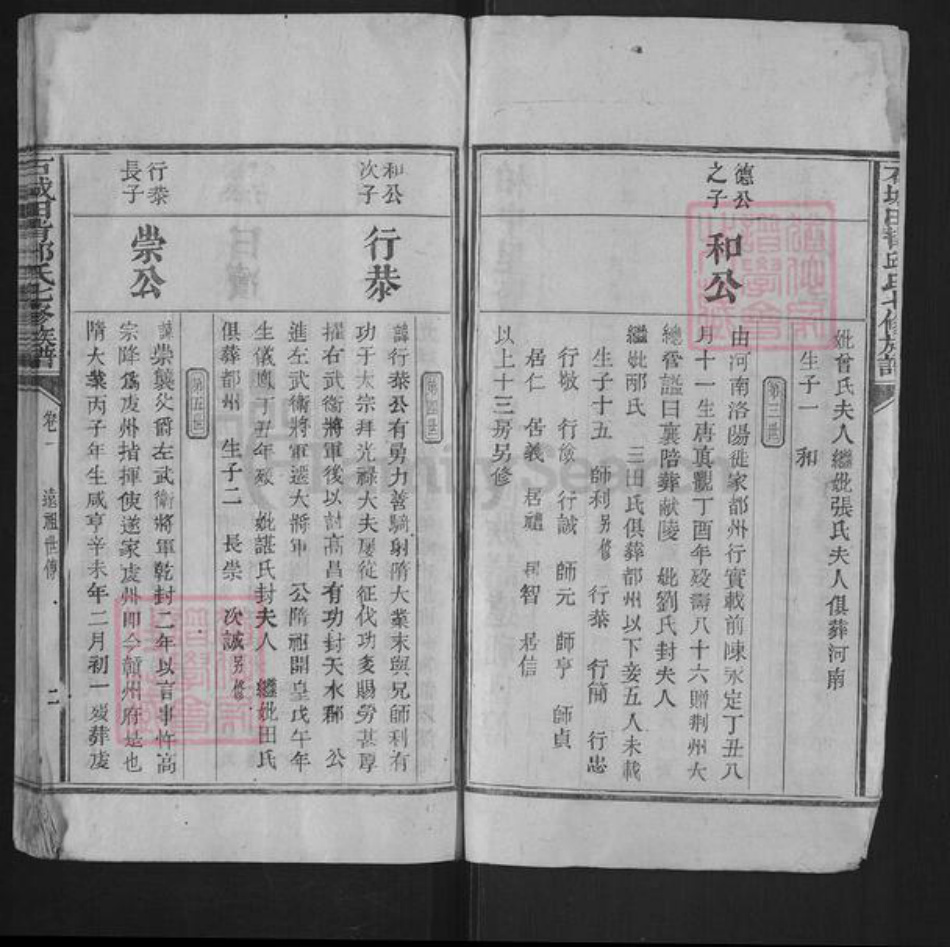 妣曾氏夫人繼妣張氏夫人俱葬河南
生子一　和
第三世
德公之子
和公
由河南洛陽徙家都州行實載前陳永定丁丑八
月十一生唐真觀丁酉年殁壽八十六贈荆州大
總管諡曰襄陪葬献陵　妣劉氏封夫人
繼妣邴氏　三田氏俱葬都州以下妾五人未載
生子十五　師利另修　行恭　行簡　行忠
行敬　行儉　行誠　師元　師亨　師貞
居仁　居義　居禮　居智　居信
以上十三房另修
第四世
和公次子
行恭
諱行恭公有勇力善騎射隋大業末與兄師利有
功于太宗拜光祿大夫屡從征伐功多賜勞甚厚
擢右武衛將軍後以討高昌有功封天水郡　公
進左武衛將軍遷大將軍　公隋祖開皇戊午年
生儀鳳丁丑年殁　妣諶氏封夫人　繼妣田氏
俱葬都州　生子二　長崇　次誠另修
第五世
行恭長子
崇公
諱崇襲父爵左武衛將軍乾封二年以言事忤高
宗降爲虔州指揮使遂家虔州卽今贛州府是也
隋大業丙子年生咸亨辛未年二月初一殁葬虔
卷一　遠祖世傳　二
氏七修族譜